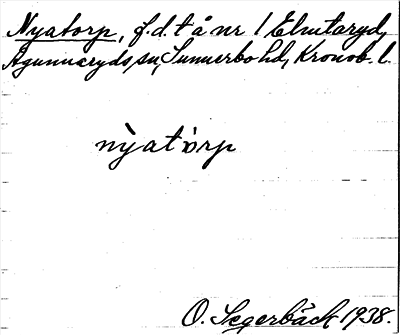 Nyatorp, f.d. t å nr 1 Elmtaryd,
Agunnaryds sn, Sunnerbo hd, Kronob. l.
nỳatòrp
O. Segerbäck 1938.